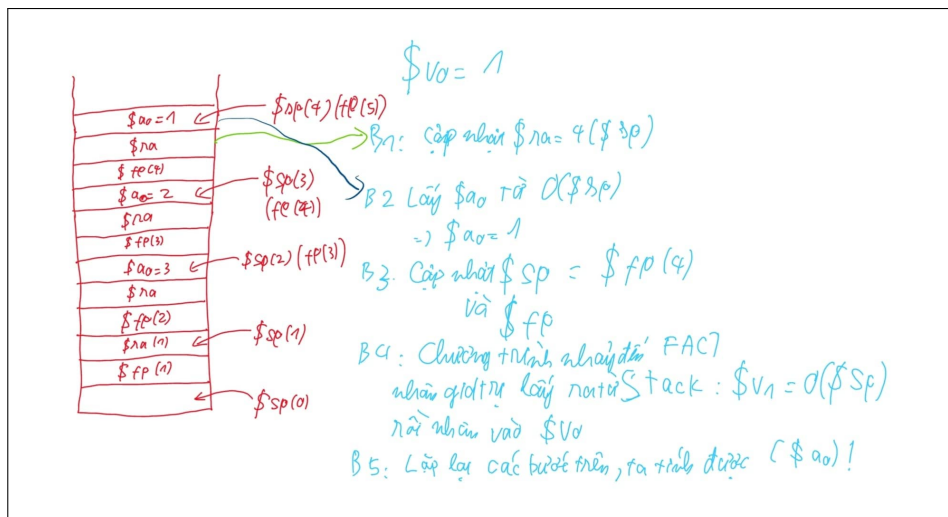 $v0 = 1
$a0 = 1
$sp(4) (fp(5))
$ra
$fp(4)
$a0 = 2
$sp(3)
(fp(4))
$ra
$fp(3)
$a0 = 3
$sp(2) (fp(3))
$ra
$fp(2)
$ra(1)
$sp(1)
$fp(1)
$sp(0)
B1: Cập nhật $ra = 4($sp)
B2 Lấy $a0 từ 0($sp)
=) $a0 = 1
B3. Cập nhật $sp = $fp(4)
và $fp
B4: Chương trình nhảy đến FACT
nhân giá trị lấy ra từ Stack: $v1 = 0($sp)
rồi nhân vào $v0
B5: Lặp lại các bước trên, ta tính được ($a0)!